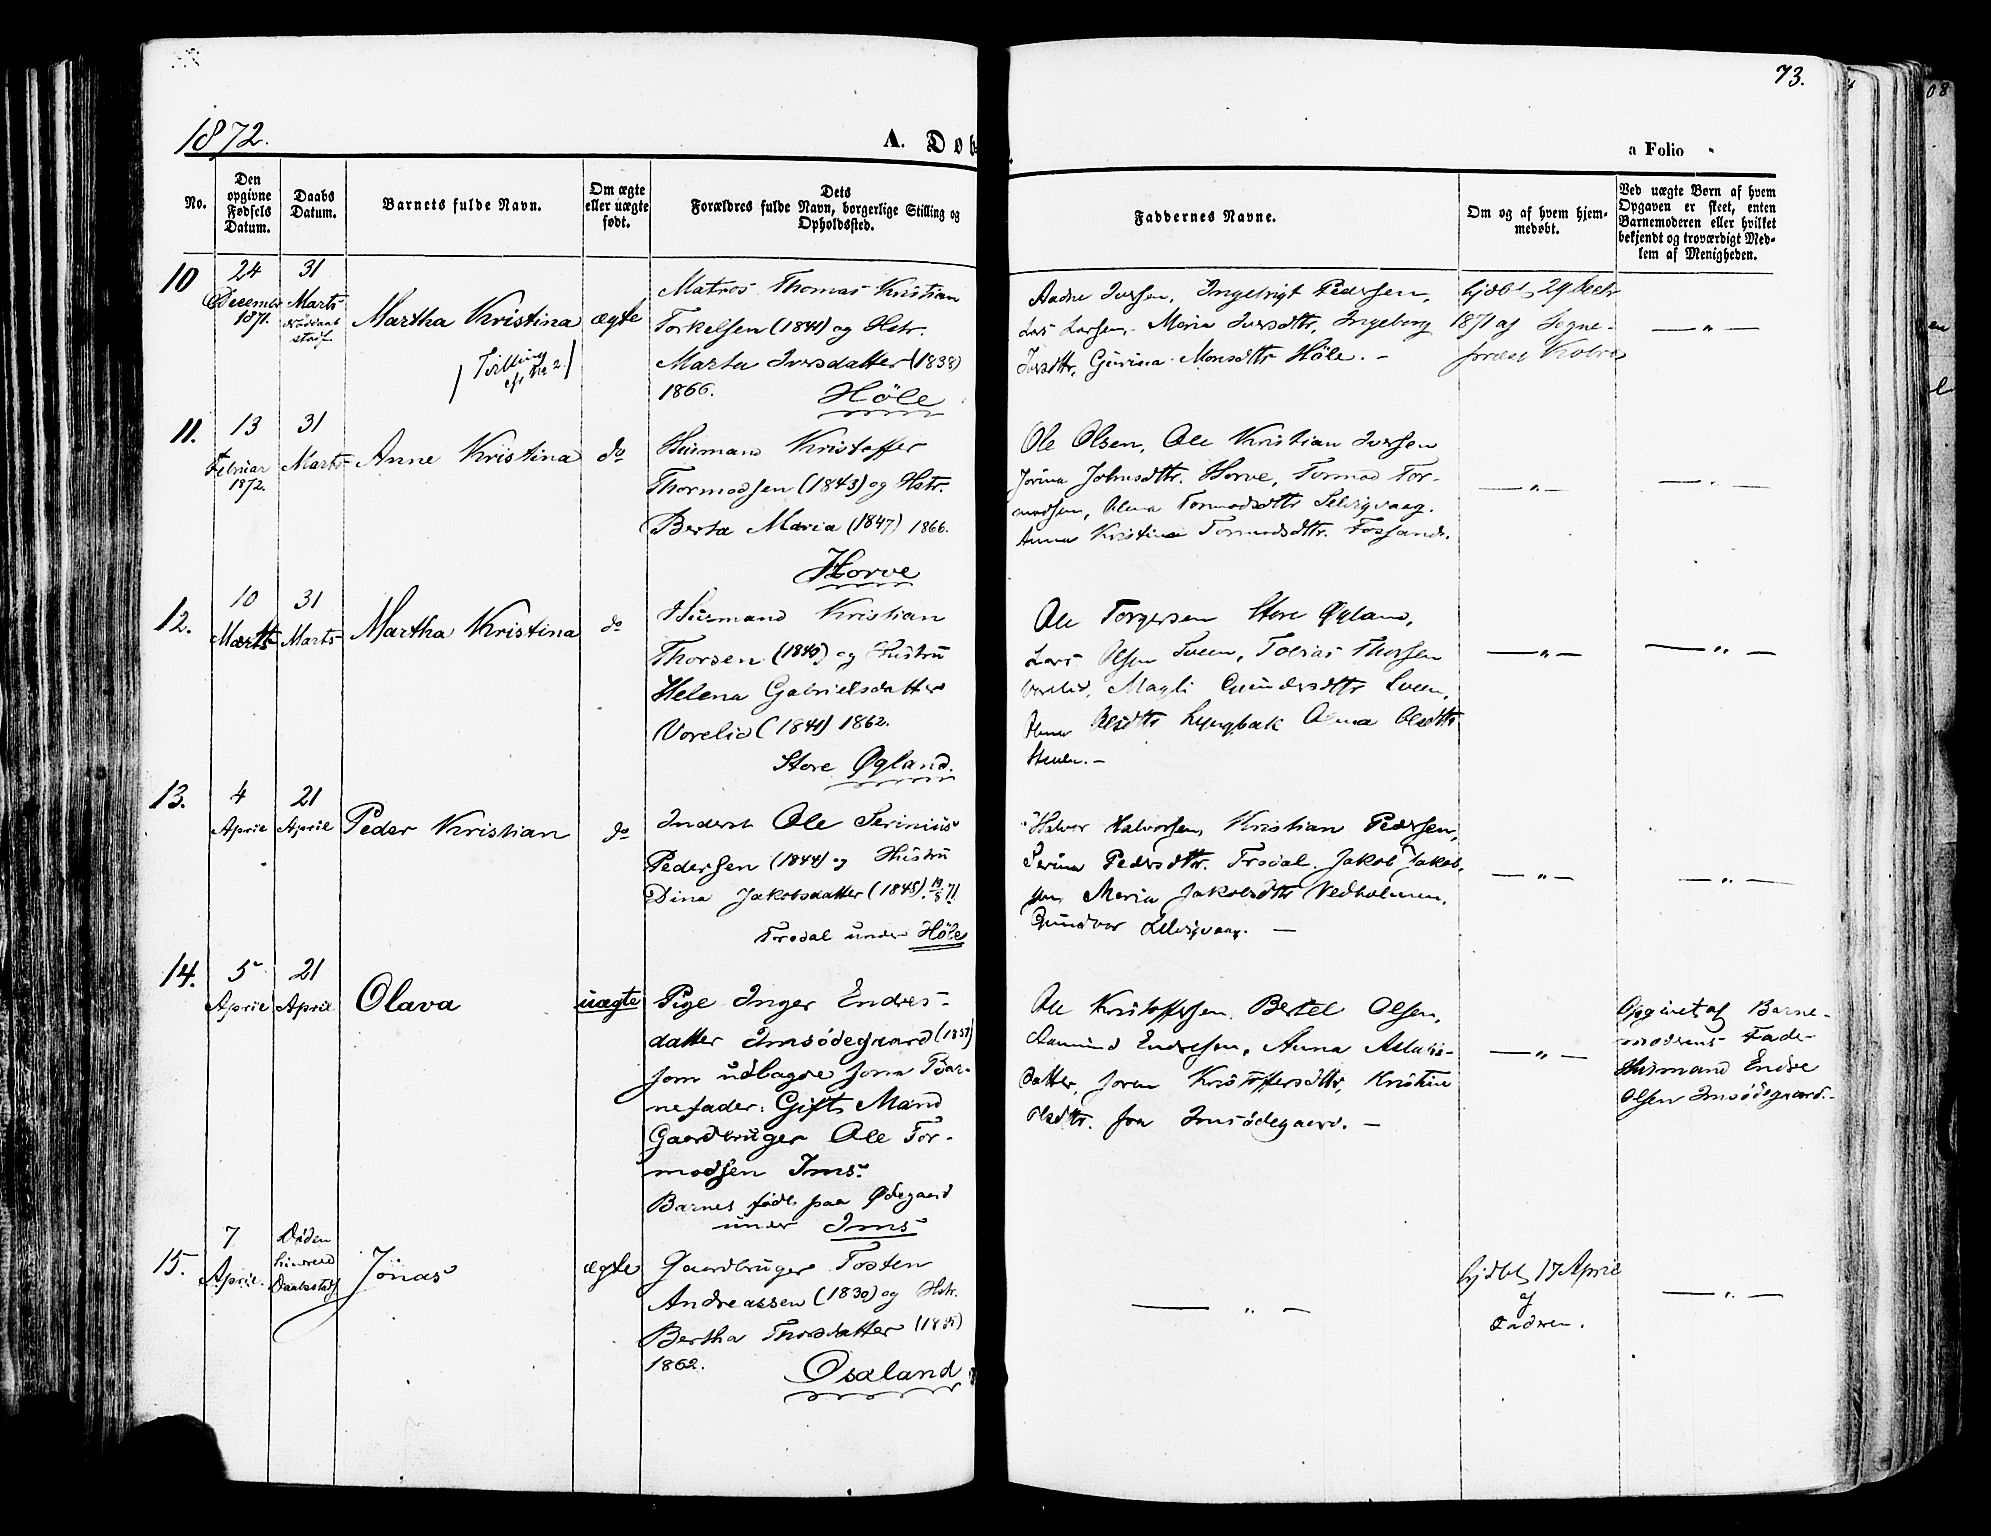 73.
1872.
A. Døb
a Folio
No.
Den opgivne Fødsels Datum.
Daabs Datum.
Barnets fulde Navn.
Om ægte eller uægte født.
Dets Forældres fulde Navn, borgerlige Stilling og Opholdssted.
Faddernes Navne.
Om og af hvem hjemmedøbt.
Ved uægte Børn af hvem Opgaven er skeet, enten Barnemoderen eller hvilket bekjendt og troværdigt Medlem af Menigheden.
10
24 December 1871.
31 Marts
Martha Kristina
ægte
Matros Thomas Kristian
Torkelsen (1841) og Hstr.
Marta Iversdatter (1838)
1866.
Höle
Aadne Iversen, Ingebrigt Pedersen,
Lars Larsen, Maria Iversdttr, Ingeborg
Iversdttr, Gurina Monsdttr Höle. –
hjdbt 29 Decbr
1871 af Sogne-
— " —
11.
13 Februar 1872.
31 Marts
Anne Kristina
do
Husmand Kristoffer
Thormodsen (1843) og Hstr.
Berta Maria (1847) 1866.
Horve
Ole Olsen, Ole Kristian Iversen
Jorina Johnsdttr. Horve, Tormod Tor-
modsen, Olena Tormodsdttr Selvigvaag.
Anna Kristina Tormodsdttr. Fossand.
— " —
— " —
12.
10 Marts
31 Marts
Martha Kristina
do
Husmand Kristian
Thorsen (1840) og Hustru
Helena Gabrielsdatter
Vorelid (1841) 1862.
Store Øgland.
Ole Torgersen Store Øgland,
Lars Olsen Sveen, Tobias Thorsen
Vorelid, Magli Gundersdttr Sveen,
Olsdttr Lyngbæk Olsdttr
— " —
— " —
13.
4 April
21 April
Peder Kristian
do
Inderst Ole Serinius
Pedersen (1844) og Hustru
Dina Jakobsdatter (1848).
Frodal under Höle
Halvor Halvorsen, Kristian Pedersen,
Serina Pedersdttr. Frodal, Jakob Jakob-
sen, Maria Jakobsdttr Vedholmen,
Gundvor Selvigvaag. —
— " —
— " —
14.
5 April
21 April
Olava
uægte
Pige Inger Endres-
datter Imsödegaard
som udlagde som Bar-
nefader: Gift Mand
Gaardbruger Ole Tor-
modsen Ims.
Barnet født paa Ødegaard
under Ims
Ole Kristoffersen, Bertel Olsen,
Aamund Endresen, Anna Aslaks-
datter, Joren Kristoffersdttr, Kristine
Olsdttr. fra Imsödegaard. –
— " —
Opgivet af Barne-
moderens Fader
Husmand Endre
Olsen Imsödegaard.
15.
7 April.
Döden hindrede Daabstadf
Jonas
ægte
Gaardbruger Tosten
Andreassen (1830) og Hstr.
Bertha Thorsdatter
1862.
Osaland
— " —
hjdbt 17 April
af
Faderen.
— " —